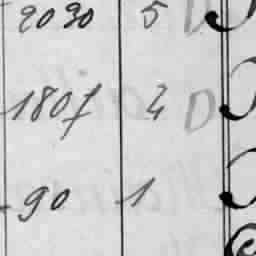 2030 5
180f 4 D
90 1